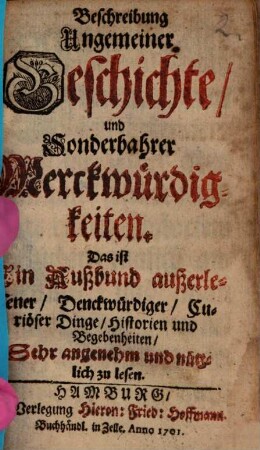 2.
Beschreibung
Ungemeiner
Geschichte/
und
Sonderbahrer
Merckwürdig-
keiten.
Das ist
Ein Außbund außerle-
sener / Denckwürdiger / Cu-
riöser Dinge / Historien und
Begebenheiten /
Sehr angenehm und nütz-
lich zu lesen.
HAMBURG /
Verlegung Hieron: Fried: Hoffmann.
Buchhändl. in Zelle. Anno 1701.